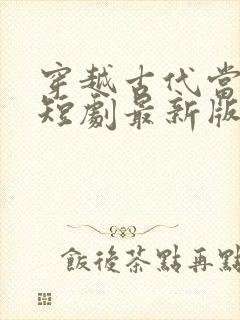 穿越古代當
短劇最新版
飯後茶點再點